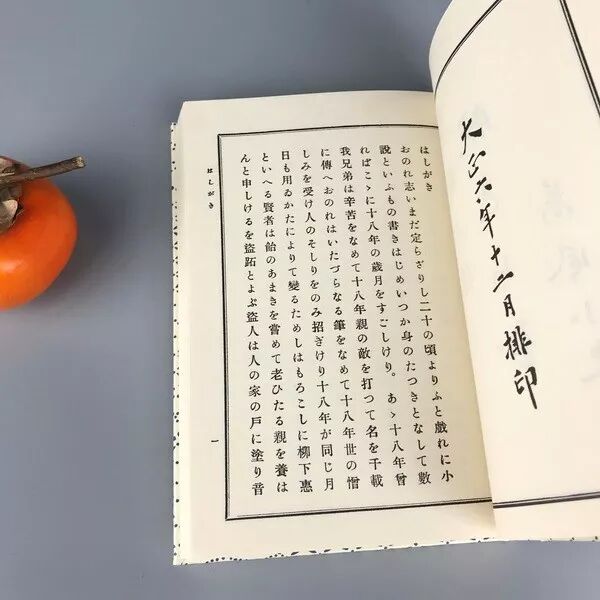 大正六年十二月排印
はしがき
おのれ志いまだ定らざりし二十の頃よりふと戯れに小
説といふもの書きはじめいつか身のたつきとなして數
ればこゝに十八年の歳月をすごしけり。あゝ十八年曾
我兄弟は辛苦をなめて十八年親の敵を打つて名を千載
に傳へおのれはいたづらなる筆をなめて十八年世の憎
しみを受け人のそしりをのみ招ぎけり十八年が同じ月
日も用ゐるかたによりて變るためしはもろこしに柳下惠
といへる賢者は飴のあまきを嘗めて老ひたる親を養は
んと申しけるを盜跖とよぶ盜人は人の家の戸に塗り音
はしがき
一